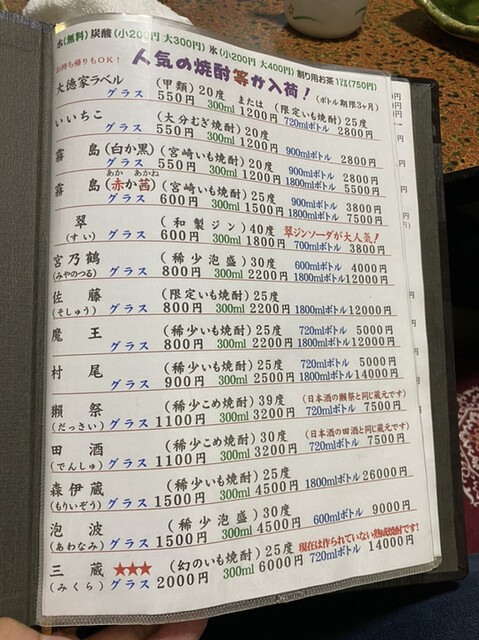 水(無料) 炭酸(小200円 大300円) 氷(小200円 大400円) 割り用お茶1㍑(750円)
お持ち帰りもOK! 人気の焼酎等が入荷! (ボトル期限3ヶ月)
大徳家ラベル (甲類)20度 または (限定いも焼酎)25度
グラス 550円 300ml 1200円 720mlボトル 2800円
いいちこ (大分むぎ焼酎)20度
グラス 550円 300ml 1200円 900mlボトル 2800円
霧島(白か黒) (宮崎いも焼酎)20度 900mlボトル 2800円
グラス 550円 300ml 1200円 1800mlボトル 5500円
あか あかね
霧島(赤か茜) (宮崎いも焼酎)25度 900mlボトル 3800円
グラス 600円 300ml 1500円 1800mlボトル 7500円
翠 (和製ジン)40度 翠ジンソーダが大人気!
(すい) グラス 600円 300ml 1800円 700mlボトル 3800円
宮乃鶴 (稀少泡盛)30度 600mlボトル 4000円
(みやのつる) グラス 800円 300ml 2200円 1800mlボトル12000円
佐藤 (限定いも焼酎)25度
(そしゅう) グラス 800円 300ml 2200円 1800mlボトル12000円
魔王 (稀少いも焼酎)25度 720mlボトル 5000円
グラス 800円 300ml 2200円 1800mlボトル12000円
村尾 (稀少いも焼酎)25度 720mlボトル 5000円
グラス 900円 300ml 2500円 1800mlボトル14000円
獺祭 (稀少こめ焼酎)39度 (日本酒の獺祭と同じ蔵元です)
(だっさい) グラス 1100円 300ml 3200円 720mlボトル 7500円
田酒 (稀少こめ焼酎)30度 (日本酒の田酒と同じ蔵元です)
(でんしゅ) グラス 1100円 300ml 3200円 720mlボトル 7500円
森伊蔵 (稀少いも焼酎)25度
(もりいぞう) グラス 1500円 300ml 4500円 1800mlボトル 26000円
泡波 (稀少泡盛)30度
(あわなみ) グラス 1500円 300ml 4500円 600mlボトル 9000円
三蔵 ★★★ (幻のいも焼酎)25度 現在は作られていない熟成焼酎です!
(みくら) グラス 2000円 300ml 6000円 720mlボトル 14000円